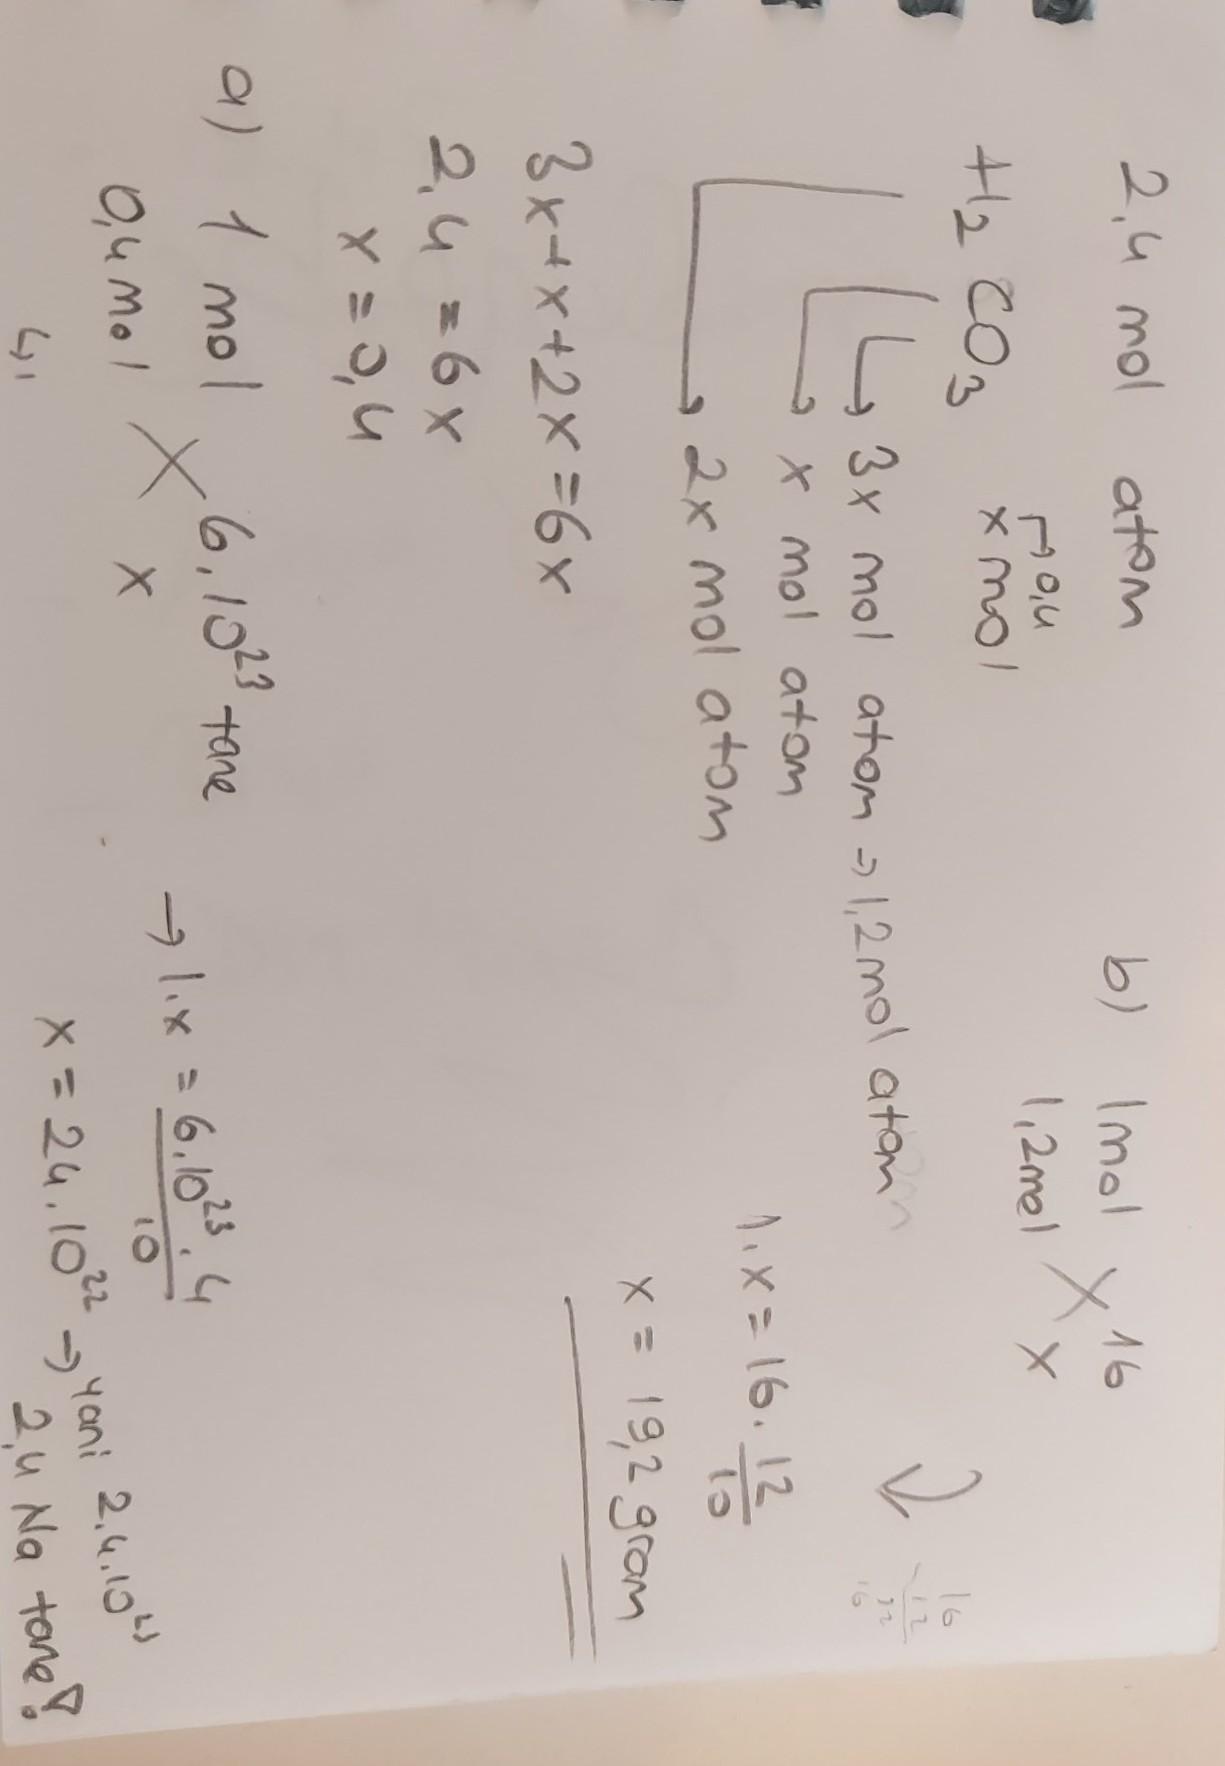 2,4 mol atom
H₂CO₃ x mol → 0,4
→ 3x mol atom → 1,2 mol atom
→ x mol atom
→ 2x mol atom
3x + x + 2x = 6x
2,4 = 6x
x = 0,4
a) 1 mol 6.10²³ tane
0,4 mol x
→ 1.x = 6.10²³.4
10
x = 24.10²² → yani 2,4.10²³
2,4 Na tane!
b) 1mol 16
1,2mol x
1.x = 16.12
10
x = 19,2 gram
16
12
32
16